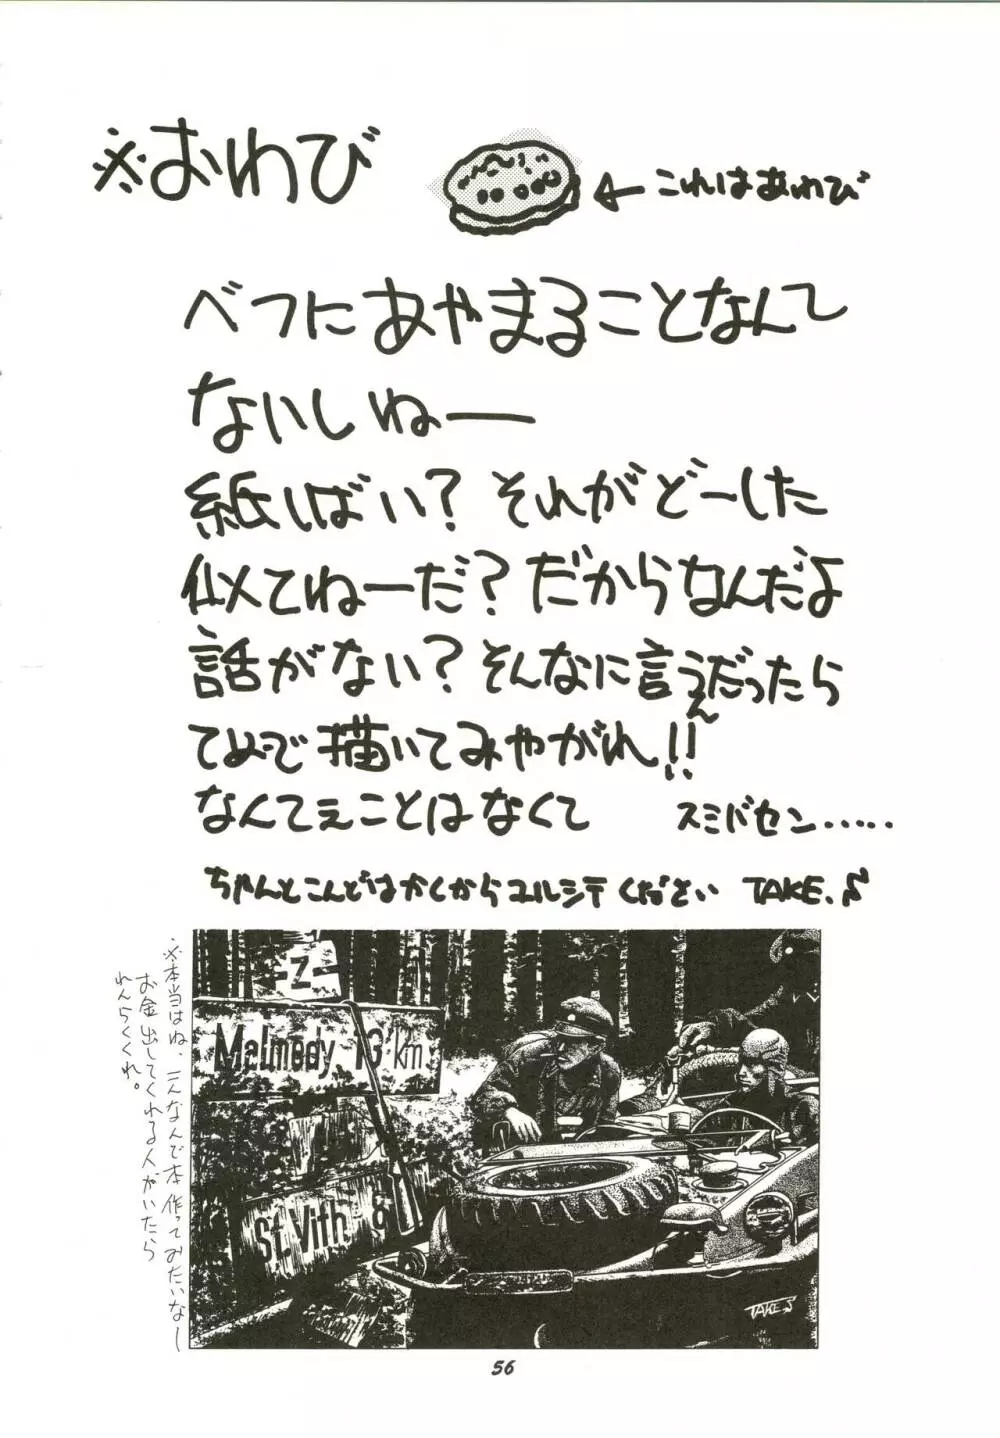 ※おわび
←これはあわび
ベツにあやまることなんて
ないしねー
紙しばい?それがどーした
似てねーだ?だからなんだよ
話がない?そんなに言うんだったら
てめーで描いてみやがれ!!
なんてェことはなくて スミバセン……
ちゃんとこんどはかくからユルシテください TAKE.S
※本当はね、こんなんで本作ってみたいなー
お金出してくれる人がいたら
れんらくくれ。
-Z-
Malmedy 13 km
St.Vith 9
TAKE.S
56